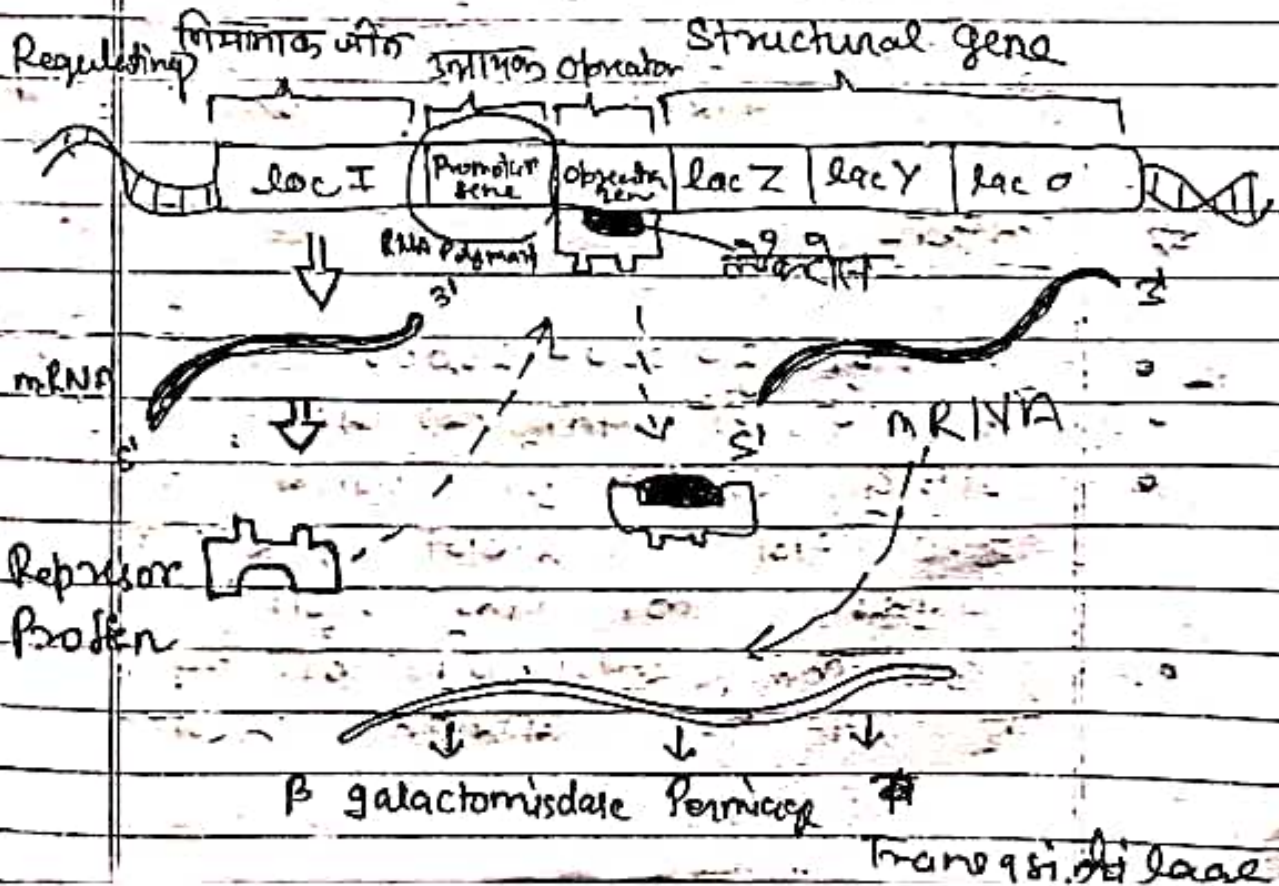 Regulating नियामक जीन उन्नायक Opreator Structural gene
loc I Promotur gene Opreator gen lac Z lac Y lac a
RNA Polymars
3' 3'
mRNA
5' 5' mRNA
Represor
Protien
β galactomisdase Permicase